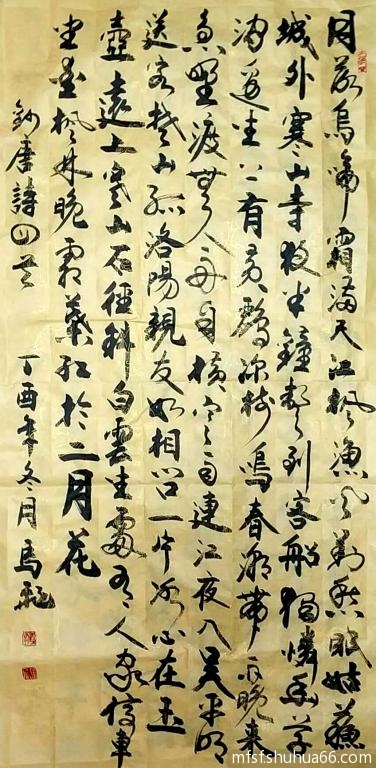 月落烏啼霜滿天江楓漁火對愁眠姑蘇
城外寒山寺夜半鐘聲到客船獨憐幽草
澗邊生上有黃鸝深樹鳴春潮帶雨晚來
急野渡無人舟自橫寒雨連江夜入吳平明
送客楚山孤洛陽親友如相問一片冰心在玉
壺遠上寒山石徑斜白雲生處有人家停車
坐愛楓林晚霜葉紅於二月花
鈔唐詩四首 丁酉年冬月馬
mfsfshuhua66.com